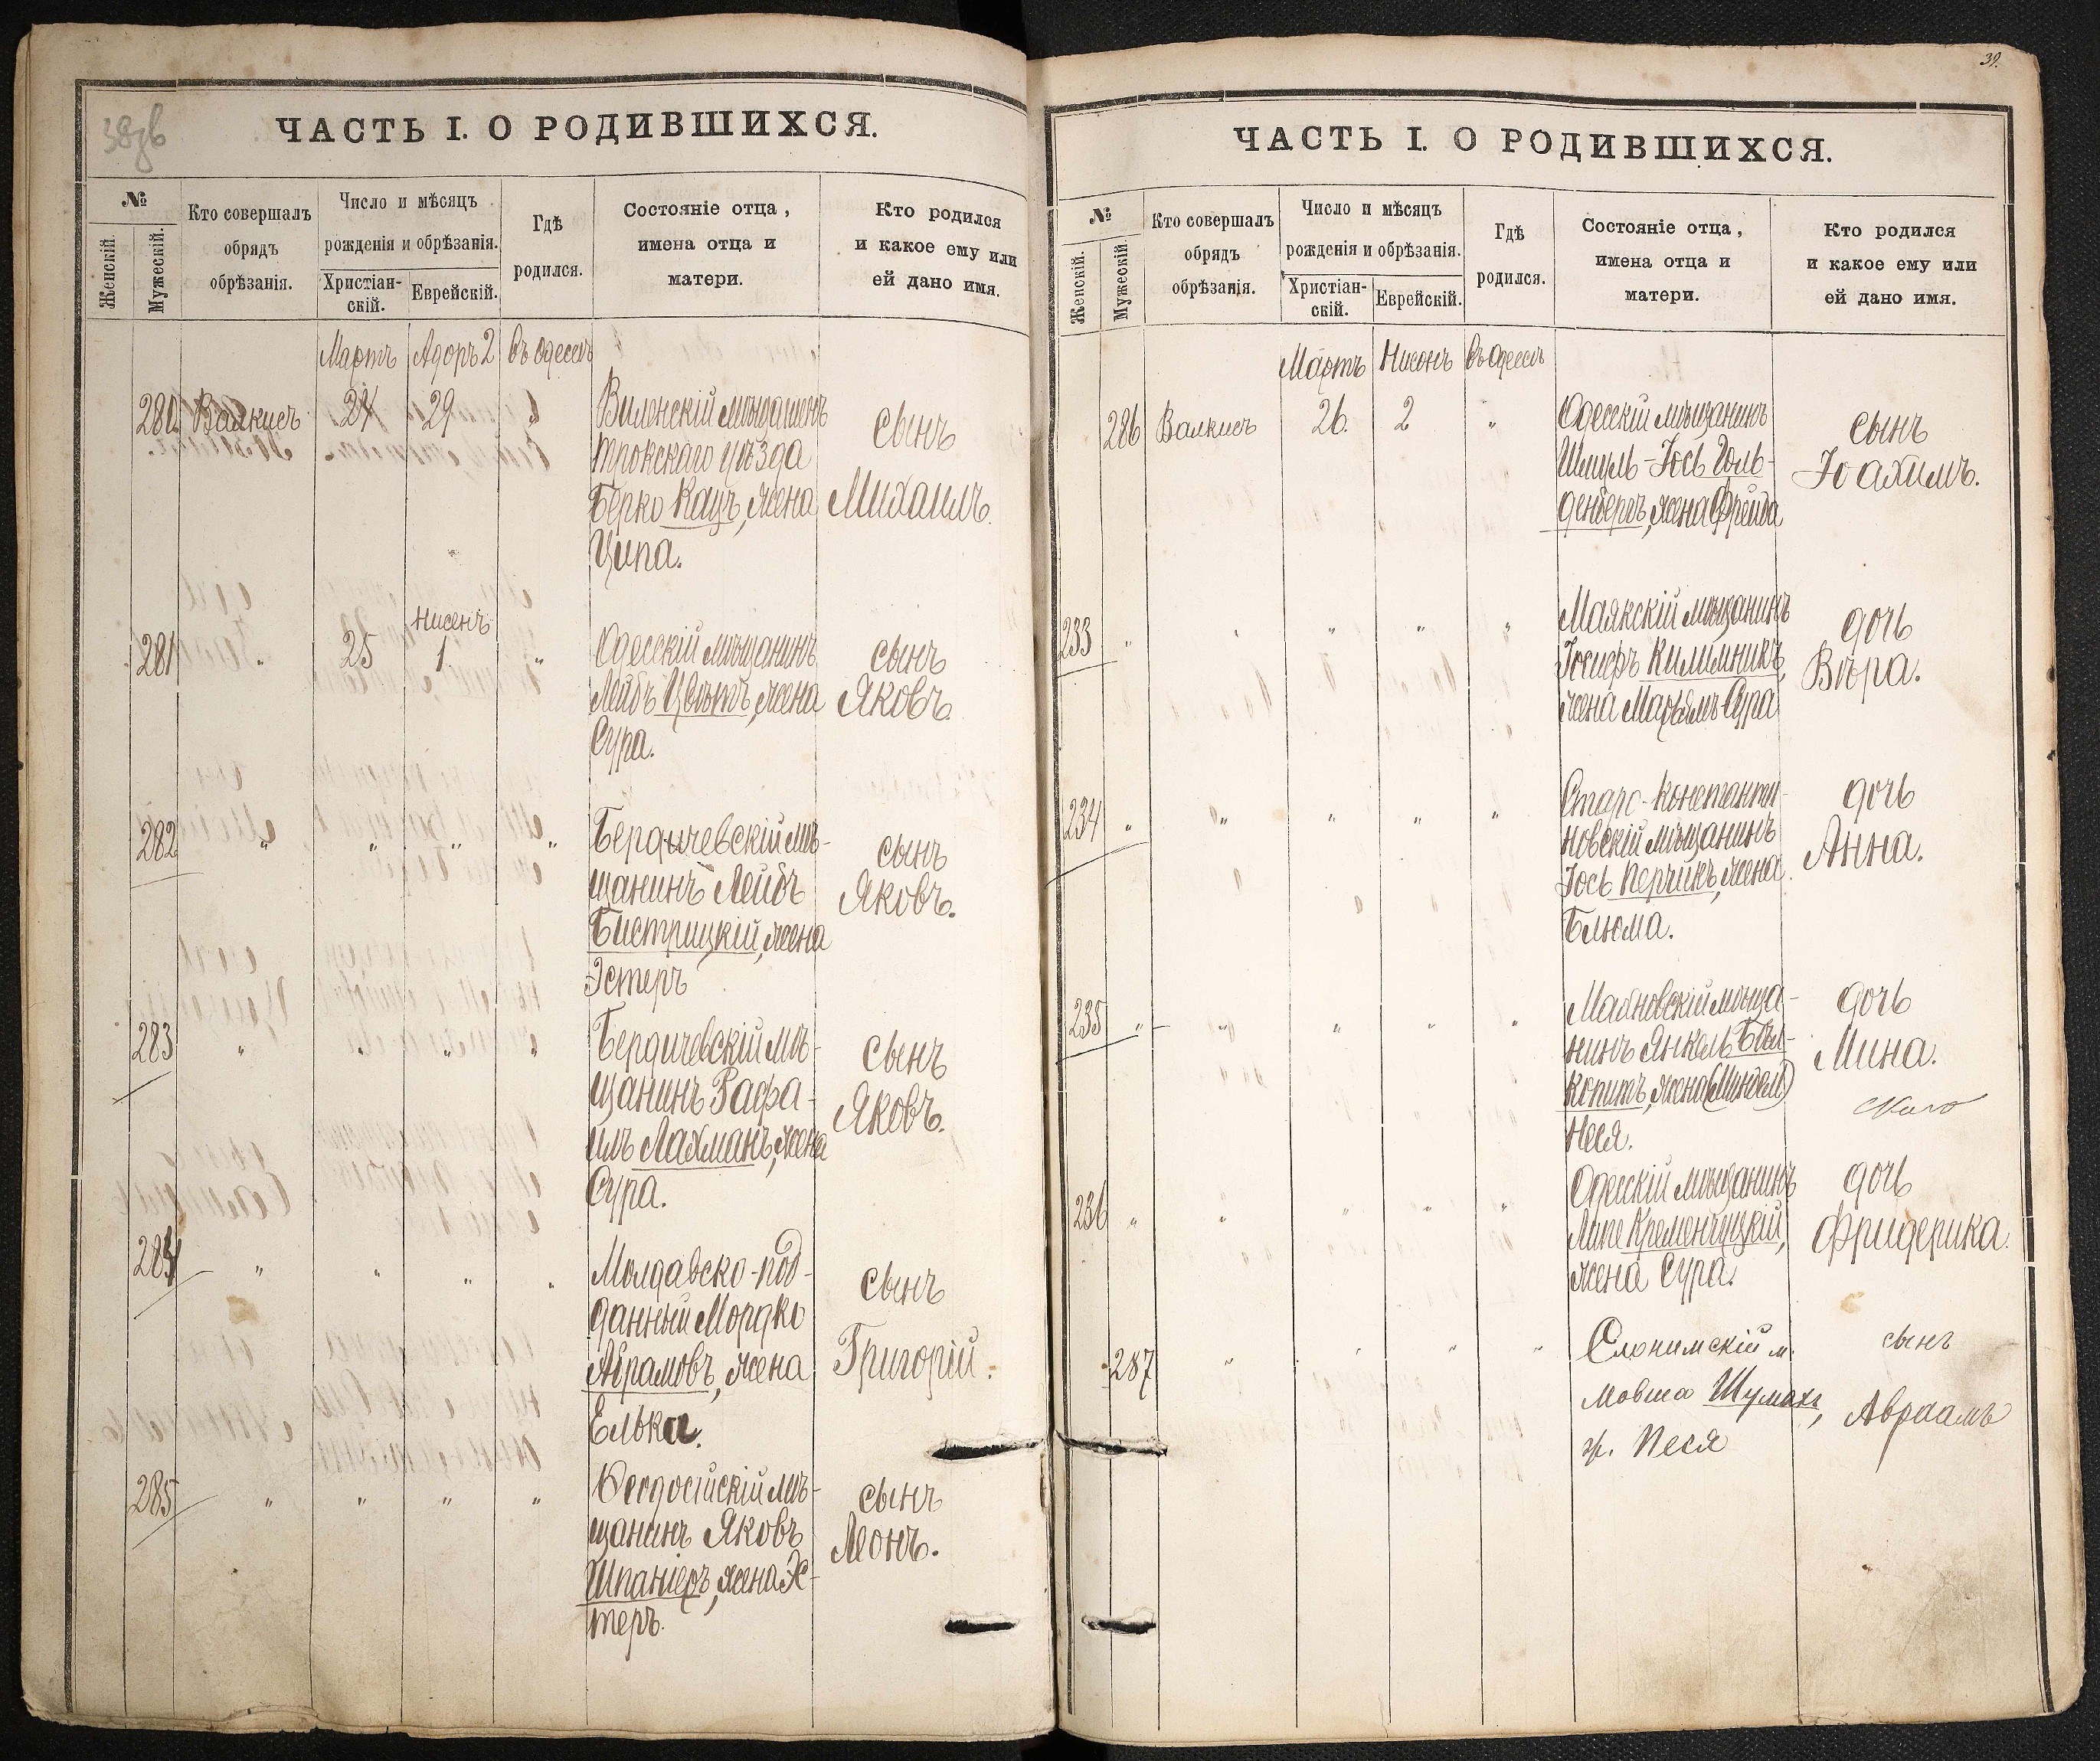 38зв
ЧАСТЬ I. О РОДИВШИХСЯ.
№
Женскій.
Мужескій.
Кто совершалъ
обрядъ
обрѣзанія.
Число и мѣсяцъ
рожденія и обрѣзанія.
Христіан-
скій.
Еврейскій.
Гдѣ
родился.
Состояніе отца,
имена отца и
матери.
Кто родился
и какое ему или
ей дано имя.
Мартъ Адоръ 2 въ Одессѣ
280 Валкисъ 24 29 "
Виленскій мѣщанинъ
Трокскаго уѣзда
Берко Кацъ, жена
Ципа.
сынъ
Михаилъ.
281 " 25 Нисенъ 1 "
Одесскій мѣщанинъ
Лейбъ Цвѣтъ, жена
Сура.
сынъ
Яковъ.
282 " " " "
Бердичевскій мѣ-
щанинъ Лейбъ
Бистрицкій, жена
Эстеръ
сынъ
Яковъ.
283 " " " "
Бердичевскій мѣ-
щанинъ Рафа-
илъ Лахманъ, жена
Сура.
сынъ
Яковъ.
284 " " " "
Молдавско-под-
данный Мордко
Абрамовъ, жена
Елька.
сынъ
Григорій.
285 " " " "
Ѳеодосійскій мѣ-
щанинъ Яковъ
Шпаніеръ, жена Эс-
теръ.
сынъ
Леонъ.
39.
ЧАСТЬ I. О РОДИВШИХСЯ.
№
Женскій.
Мужескій.
Кто совершалъ
обрядъ
обрѣзанія.
Число и мѣсяцъ
рожденія и обрѣзанія.
Христіан-
скій.
Еврейскій.
Гдѣ
родился.
Состояніе отца,
имена отца и
матери.
Кто родился
и какое ему или
ей дано имя.
Мартъ Нисонъ въ Одессѣ
286 Валкисъ 26. 2 "
Одесскій мѣщанинъ
Шмуль-ІосьГоль-
денбергъ, жена Фрейда
сынъ
Іоахимъ.
233 " " " " "
Маякскій мѣщанинъ
Іосифъ Килимникъ,
жена Сура
дочь
Вѣра.
234 " " " " "
Старо-константи-
новскій мѣщанинъ
Іось Перчикъ, жена
Блюма.
дочь
Анна.
235 " " " " "
мѣща-
нинъ Янкель Бѣл-
копитъ, жена
Неся.
дочь
Мина.
236 " " " " "
Одесскій мѣщанинъ
Липе Кременчуцкій,
жена Сура.
дочь
Фридерика.
287 " " " "
Слонимскій м.
Мовша Шумахъ,
ж. Песя
сынъ
Авраамъ